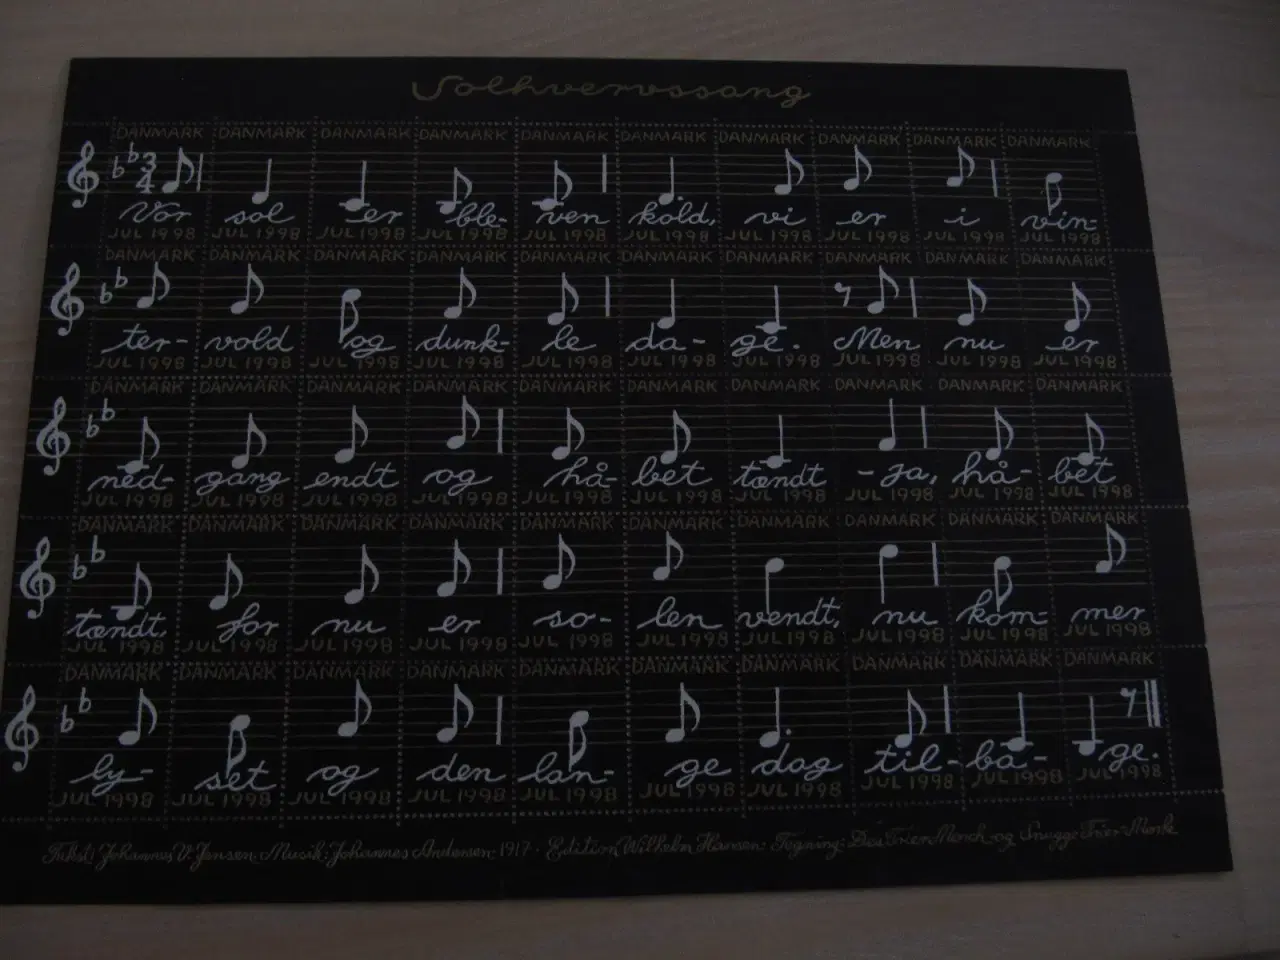 Solhvervssang
DANMARK DANMARK DANMARK DANMARK DANMARK DANMARK DANMARK DANMARK DANMARK DANMARK
3
4
Vor sol er ble- ven kold, vi er i vin-
JUL 1998 JUL 1998 JUL 1998 JUL 1998 JUL 1998 JUL 1998 JUL 1998 JUL 1998 JUL 1998 JUL 1998
DANMARK DANMARK DANMARK DANMARK DANMARK DANMARK DANMARK DANMARK DANMARK DANMARK
ter- vold og dunk- le da- ge. Men nu er
JUL 1998 JUL 1998 JUL 1998 JUL 1998 JUL 1998 JUL 1998 JUL 1998 JUL 1998 JUL 1998 JUL 1998
DANMARK DANMARK DANMARK DANMARK DANMARK DANMARK DANMARK DANMARK DANMARK DANMARK
ned- gang endt og hå- bet tændt - ja, hå- bet
JUL 1998 JUL 1998 JUL 1998 JUL 1998 JUL 1998 JUL 1998 JUL 1998 JUL 1998 JUL 1998 JUL 1998
DANMARK DANMARK DANMARK DANMARK DANMARK DANMARK DANMARK DANMARK DANMARK DANMARK
tændt, for nu er so- len vendt, nu kom- mer
JUL 1998 JUL 1998 JUL 1998 JUL 1998 JUL 1998 JUL 1998 JUL 1998 JUL 1998 JUL 1998 JUL 1998
DANMARK DANMARK DANMARK DANMARK DANMARK DANMARK DANMARK DANMARK DANMARK DANMARK
ly- set og den lan- ge dag til- ba- ge.
JUL 1998 JUL 1998 JUL 1998 JUL 1998 JUL 1998 JUL 1998 JUL 1998 JUL 1998 JUL 1998 JUL 1998
Tekst: Johannes V. Jensen · Musik: Johannes Andersen 1917 · Edition Wilhelm Hansen · Tegning: Dea Trier Mørch og Snugge Trier Mørch